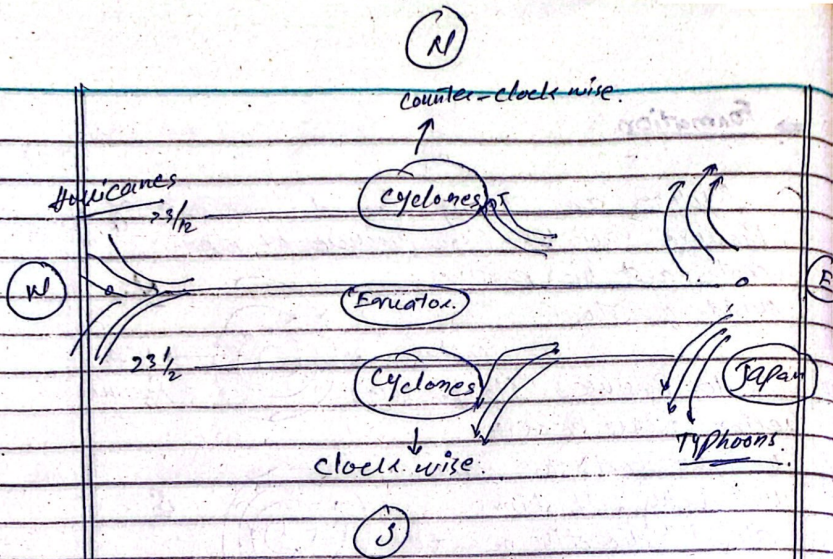 N
Counter-clock wise.
Hurricanes
Cyclones
23 1/2
W
E
Equator.
0
23 1/2
Cyclones
Japan
Typhoons
Clock wise.
S